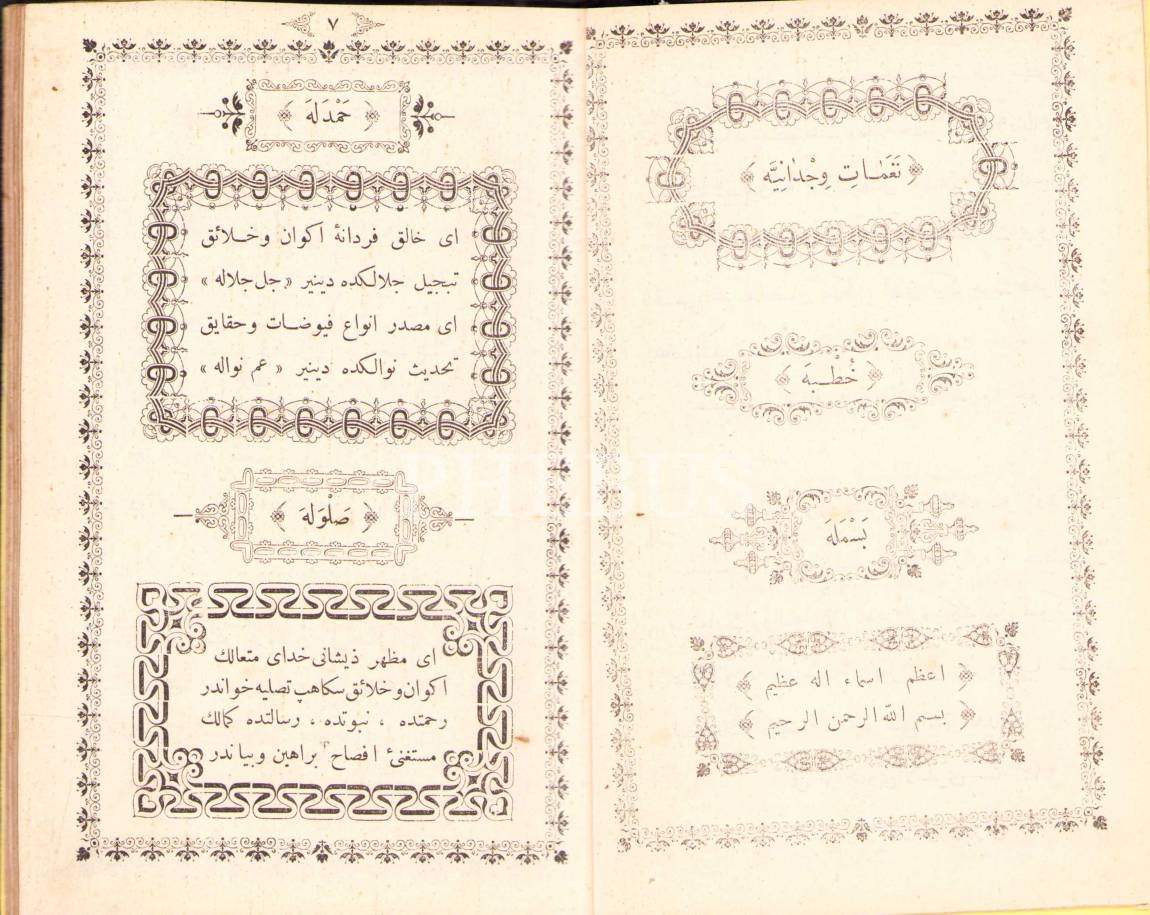 نَغَمَاتِ وِجْدَانِيَّه
خُطْبَه
بَسْمَلَه
اعظم اسماء اله عظيم
بسم الله الرحمن الرحيم
٧
حَمْدَلَه
ای خالق فردانهٔ اکوان وخلائق
تبجیل جلالکده دینیر «جل جلاله»
ای مصدر انواع فیوضات وحقایق
تحدیث نوالکده دینیر «عم نواله»
صَلْوَلَه
ای مظهر ذیشانی خدای متعالك
اکوان وخلائق سکا هپ تصلیه خواندر
رحمتده ، نبوتده ، رسالتده کمالك
مستغنیٔ افصاح براهین وبیاندر
PHEBUS